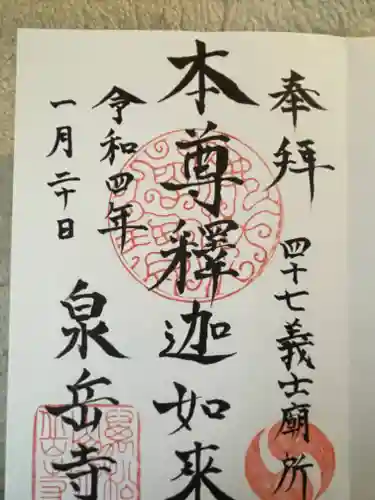 奉拝
四十七義士廟所
本尊釋迦如来
令和四年
一月二十日
泉岳寺